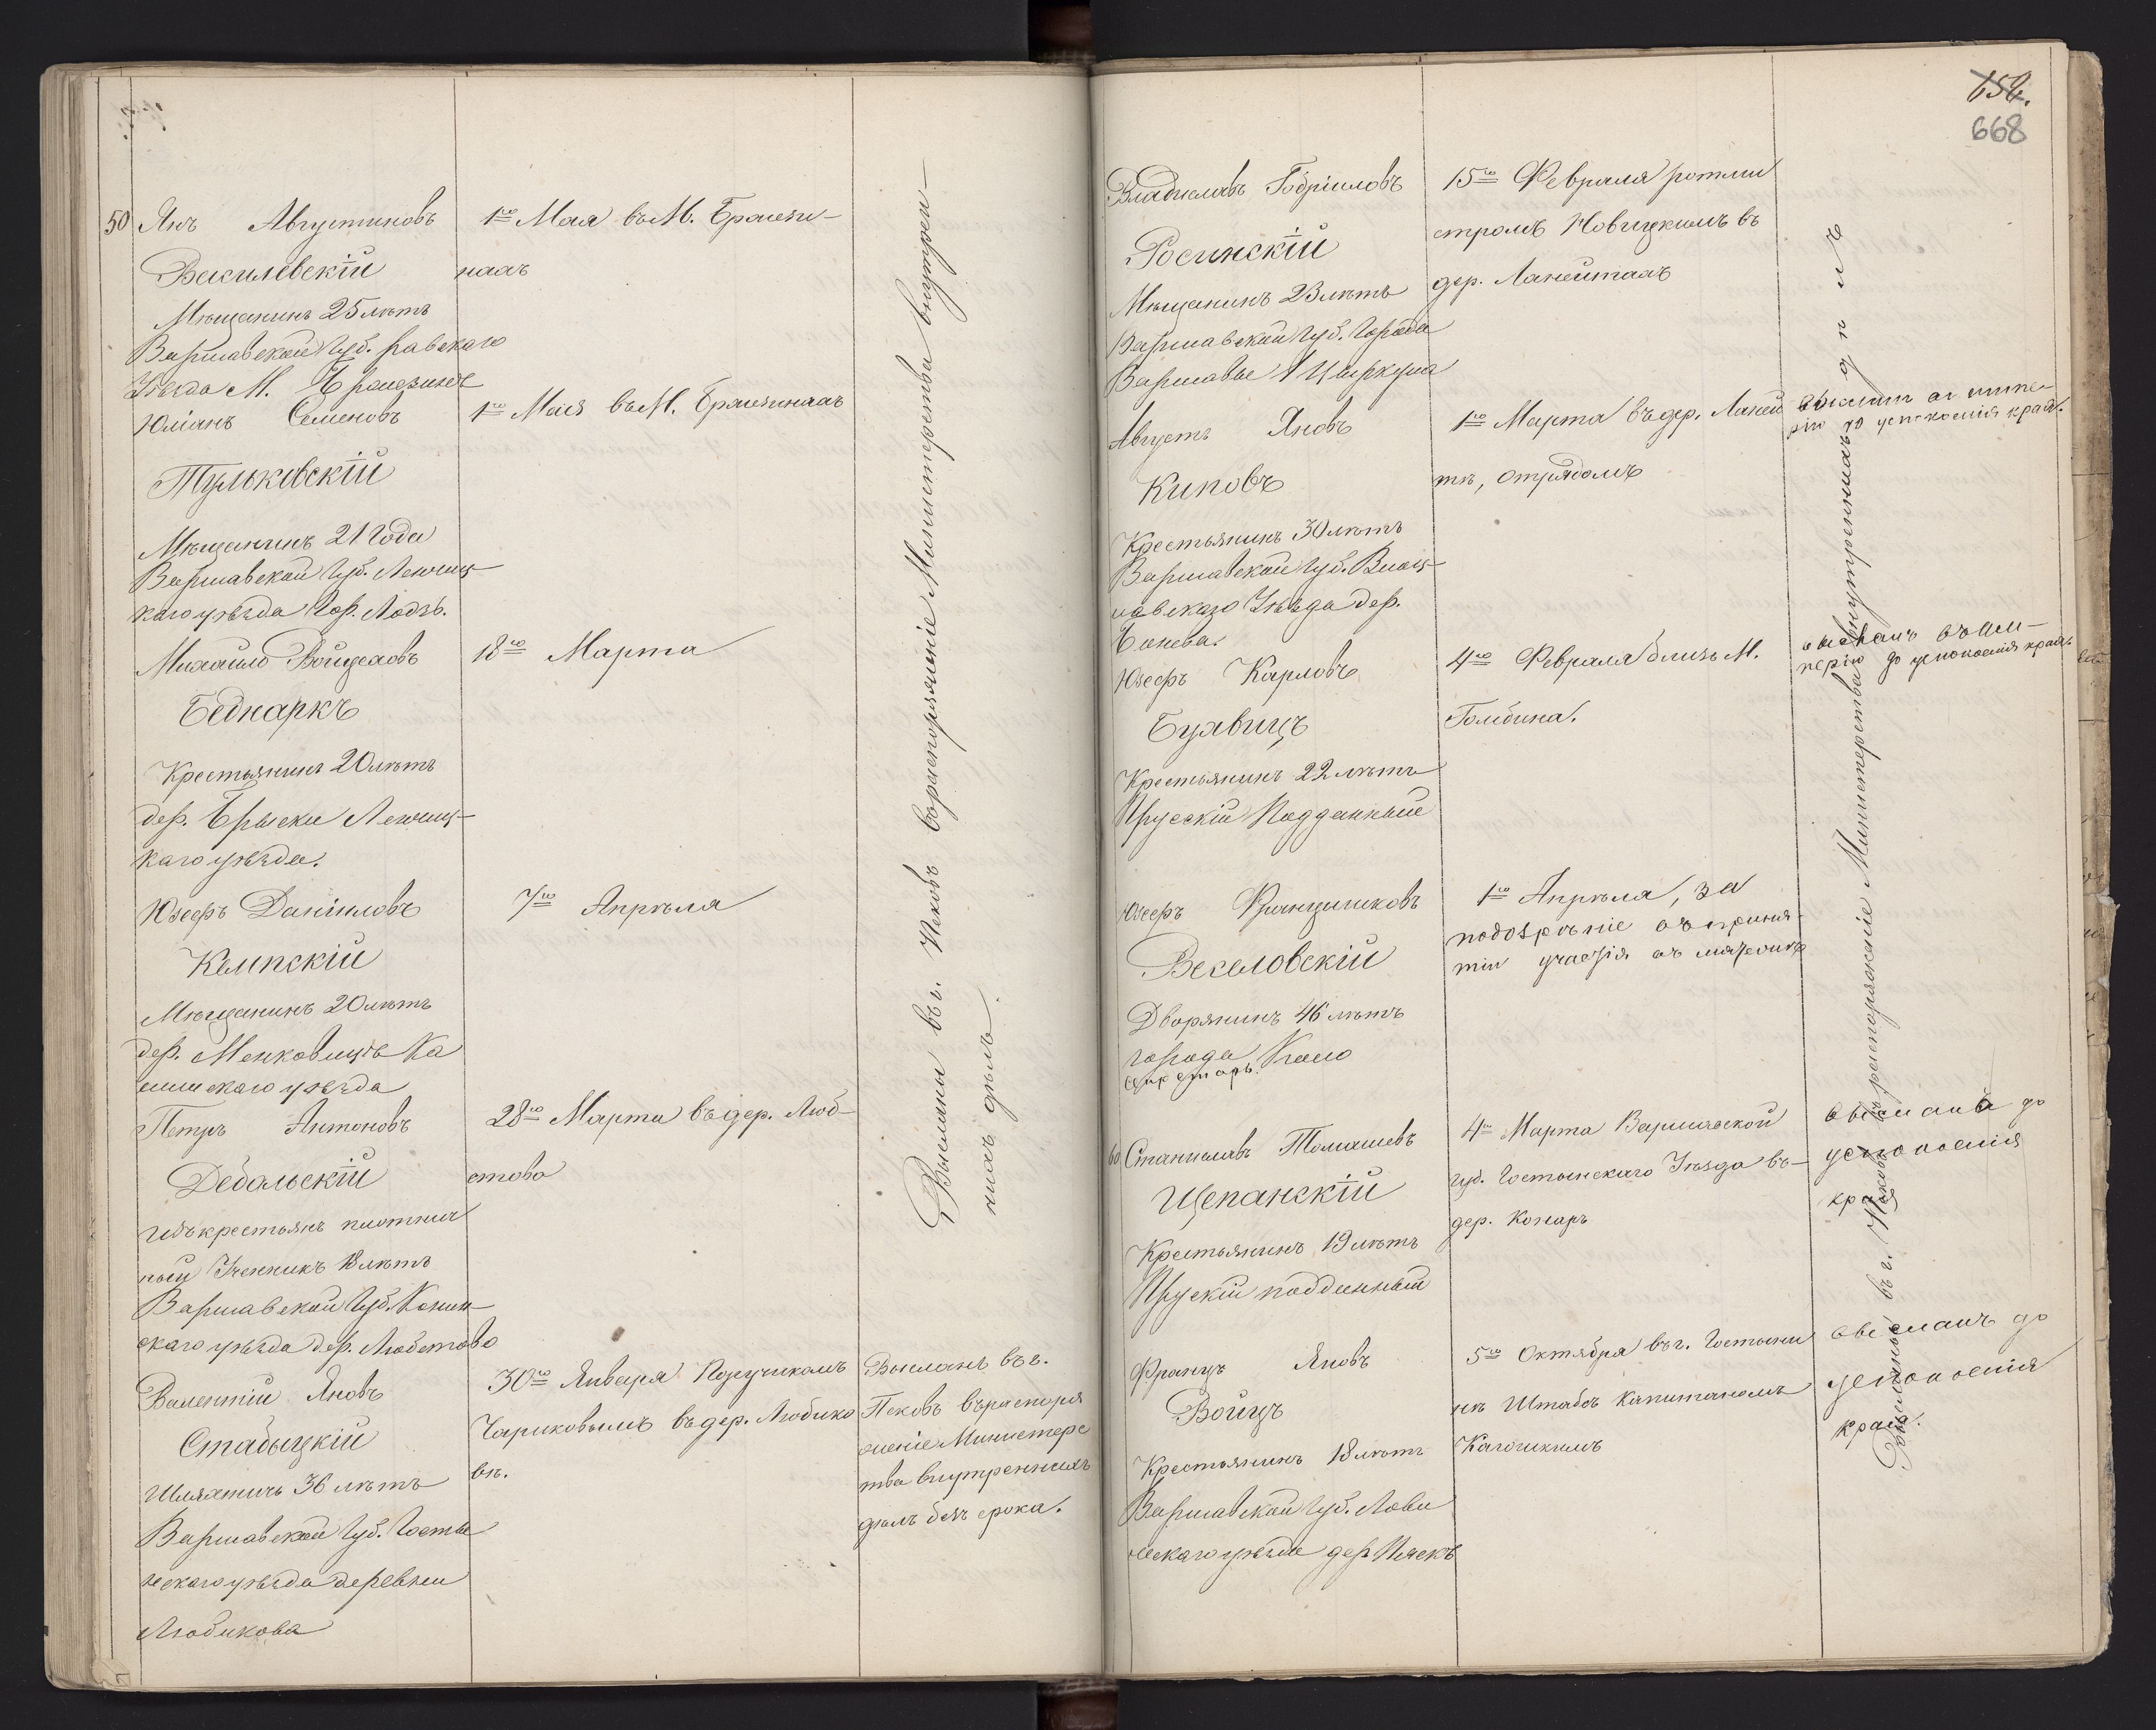 50 Янъ Августиновъ
Василевскій
Мѣщанинъ 25 лѣтъ
Варшавской Губ. Равскаго
Уѣзда М. Бржезинъ
1го Мая въ М. Бржези-
нахъ
Юліанъ Семеновъ
Тульковскій
Мѣщанинъ 21 Года
Варшавской Губ. Ленчиц-
каго уѣзда Гор. Лодзь.
1го Мая въ М. Бржезинахъ
Михаилъ Войцеховъ
Беднаркъ
Крестьянинъ 20 лѣтъ
дер. Брыски Ленчиц-
каго уѣзда.
18го Марта
Юзефъ Даніиловъ
Кемпскій
Мѣщанинъ 20 лѣтъ
дер. Менковицъ Ка
лишскаго уѣзда
7го Апрѣля
Петръ Антоновъ
Дебальскій
Изъ крестьянъ плотнич
ный Ученикъ 18 лѣтъ
Варшавской Губ. Конин-
скаго уѣзда дер. Любстово
28го Марта въ дер. Люб-
стово
Валентій Яновъ
Стабыцкій
Шляхтичъ 36 лѣтъ
Варшавской Губ. Госты
нскаго уѣзда деревни
Любикова
30го Января Поручикомъ
Чариковымъ въ дер. Любико
вѣ.
Высланъ въ г.
Псковъ въ распоря
женіе Министерс
тва внутреннихъ
дѣлъ безъ срока.
Высланы въ г. Псковъ въ распоряженіе Министерства внутрен-
нихъ дѣлъ.
152.
668
Владиславъ Габріиловъ
Росинскій
Мѣщанинъ 23 лѣтъ
Варшавской Губ. Города
Варшавы 1 Циркула
15го Февраля ротми
стромъ Новицкимъ въ
дер. Ланейтахъ
Августъ Яновъ
Киповъ
Крестьянинъ 30 лѣтъ
Варшавской Губ. Влоц-
лавскаго Уѣзда дер.
1го Марта въ дер. Ланей
тѣ, отрядомъ
высланъ въ импе-
рію до успокоенія края.
Юзефъ Карловъ
Буявицъ
Крестьянинъ 22 лѣтъ
Прусскій Подданный
4го Февраля близь М.
Гомбина.
высланъ въ им-
перію до успокоенія края
Юзефъ Францишковъ
Веселовскій
Дворянинъ 46 лѣтъ
города Коло
секретарь.
1го Апрѣля, за
подозрѣніе въ приня-
тіи участія въ мятежѣ
60 Станиславъ Томашевъ
Щепанскій
Крестьянинъ 19 лѣтъ
Прускій подданный
4го Марта Варшавской
губ. Гостынскаго Уѣзда въ
дер. Конаръ
высланъ до
успокоенія
края
Францъ Яновъ
Войцъ
Крестьянинъ 18 лѣтъ
Варшавской Губ. Лови
чскаго уѣзда дер Пяскъ
5го Октября въ г. Гостыни
нѣ Штабсъ Капитаномъ
высланъ до
успокоенія
края.
Высланы въ г. Псковъ въ распоряженіе Министерства внутреннихъ дѣлъ